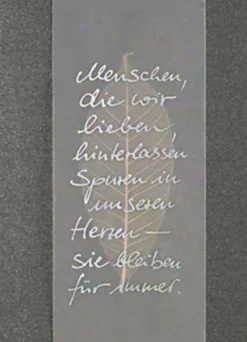 Menschen,
die wir
lieben,
hinterlassen
Spuren in
unseren
Herzen —
sie bleiben
für immer.